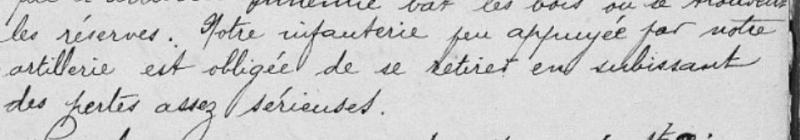 bat les bois où se trouvent
les réserves. Notre infanterie peu appuyée par notre
artillerie est obligée de se retirer en subissant
des pertes assez sérieuses.